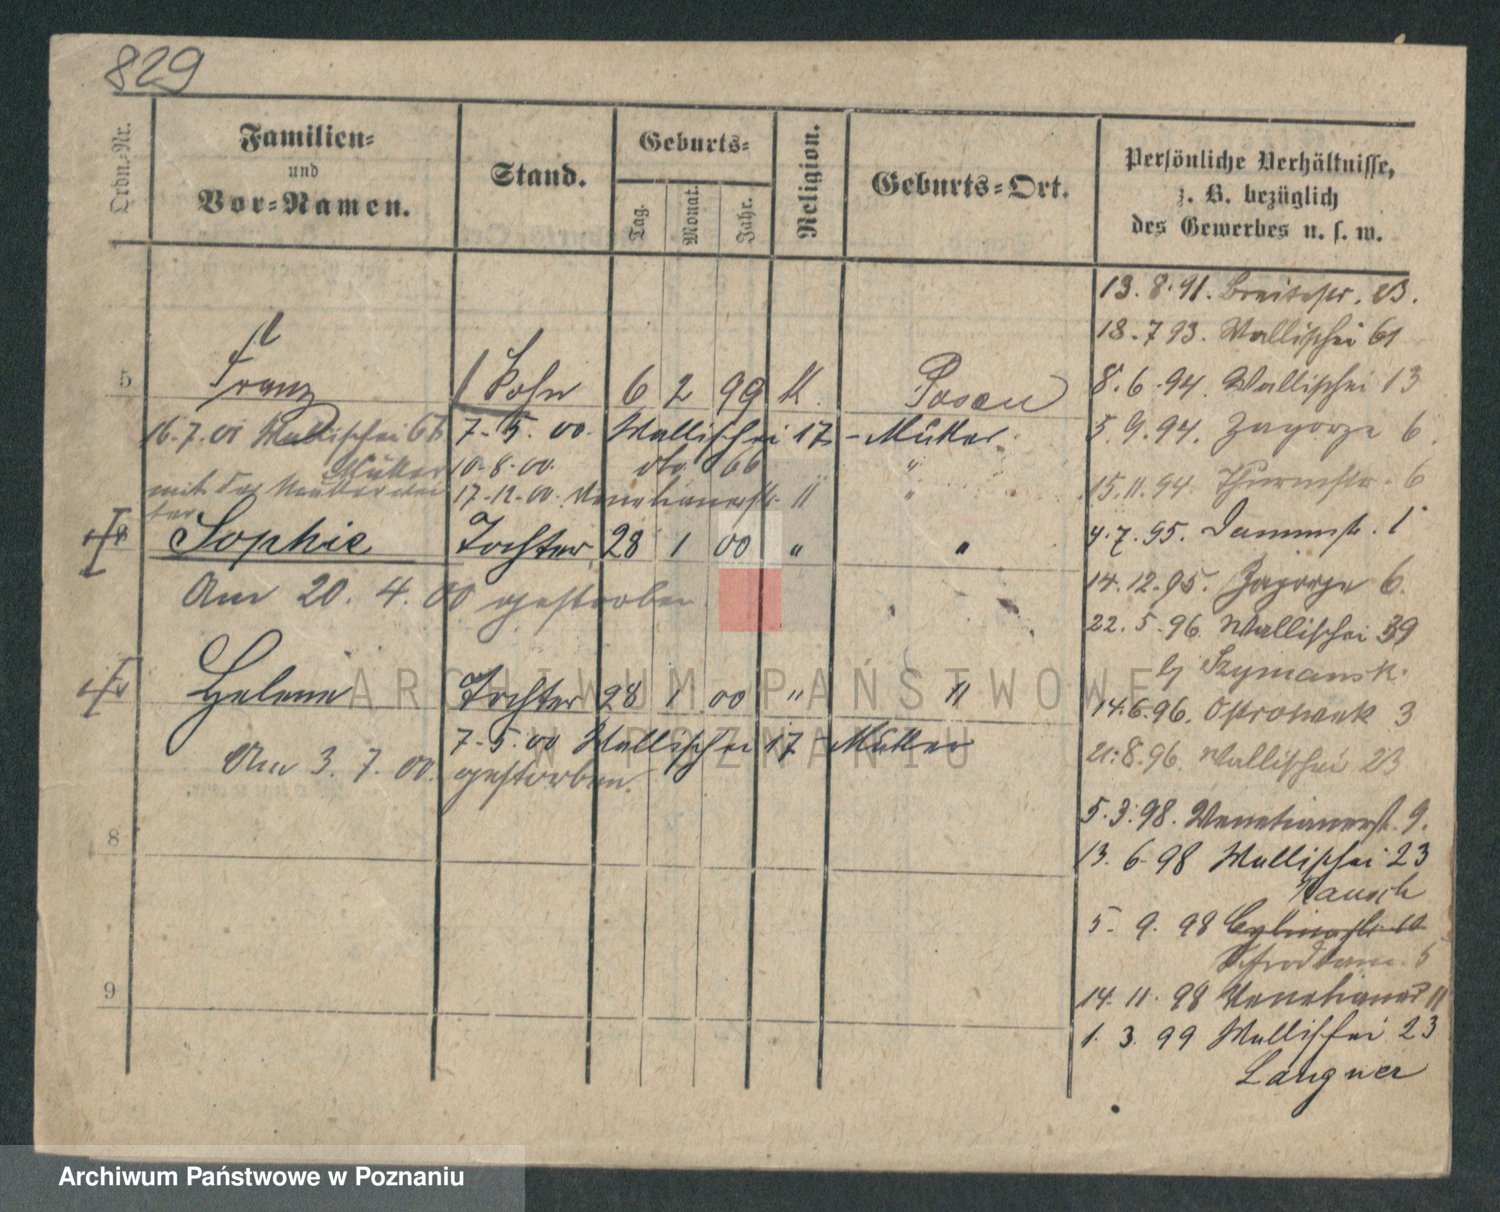 829
Ordn.-Nr.
Familien-
und
Vor-Namen.
Stand.
Geburts-
Tag.
Monat.
Jahr.
Religion.
Geburts-Ort.
Persönliche Verhältnisse,
z. B. bezüglich
des Gewerbes u. s. w.
13. 8. 91. Breitestr. 23.
18. 7 93. Wallischei 61
8. 6. 94. Wallischei 13
5. 9. 94. Zagorze 6.
15. 11. 94. Thurmstr. 6
4. 7. 95. Dammstr. 1
14. 12. 95. Zagorze 6.
22. 5. 96. Wallischei 39
b/ Szymansk.
14. 6. 96. Ostrowek 3
21. 8. 96. Wallischei 23
5. 3. 98. Venetianerstr. 9.
13. 6. 98 Wallischei 23
Rausch
5. 9. 98
14. 11. 98 Venetianer 11
1. 3. 99 Wallischei 23
Langner
5 Franz Sohn 6 2 99 K. Posen
16. 7. 01 Wallischei 66 7. 5. 00. Wallischei 17 - Müller
Müller 10. 8. 00. dto 66 "
17. 12. 00. Venetianerstr. 11 "
Sophie Tochter 28 1 00 " "
Am 20. 4. 00 gestorben
Helene Tochter 28 1 00 " "
7. 5. 00 Wallischei 17 Müller
Am 3. 7. 00. gestorben.
8
9
ARCHIWUM PAŃSTWOWE
W POZNANIU
Archiwum Państwowe w Poznaniu